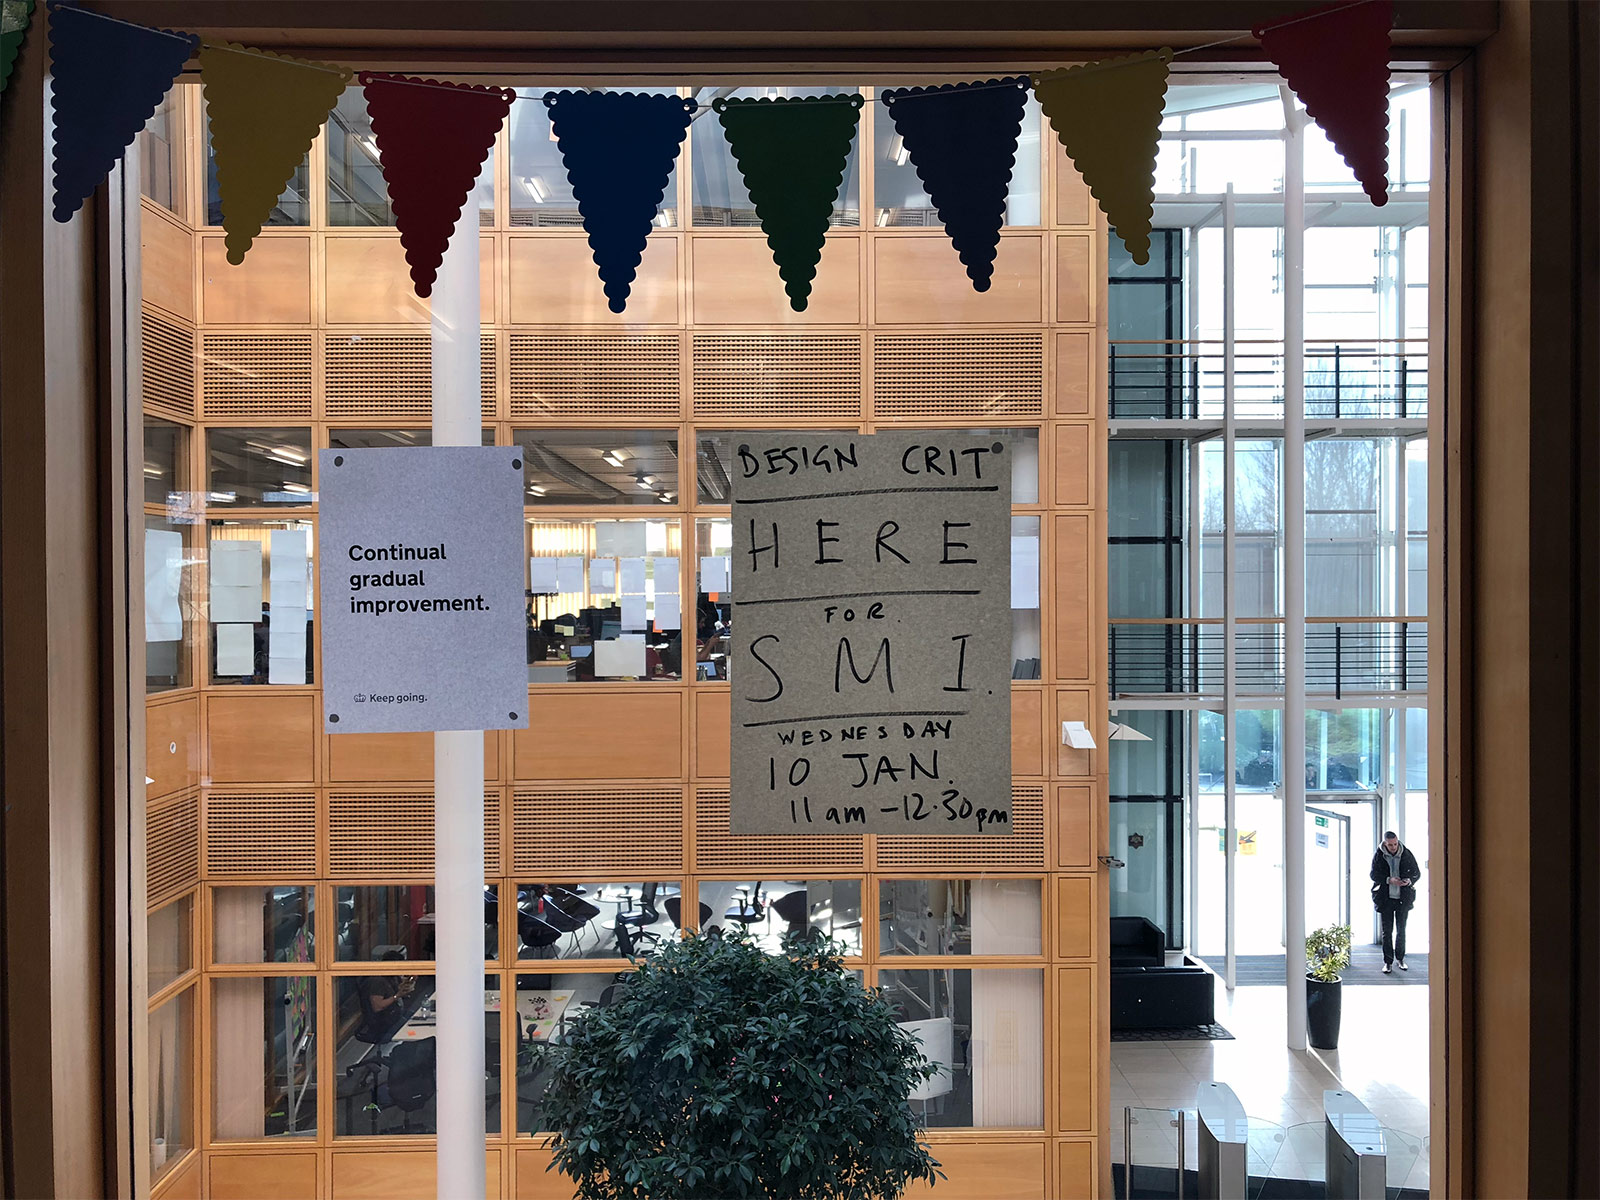 Continual
gradual
improvement.
Keep going.
DESIGN CRIT
HERE
FOR.
SMI.
WEDNESDAY
10 JAN.
11am-12.30pm